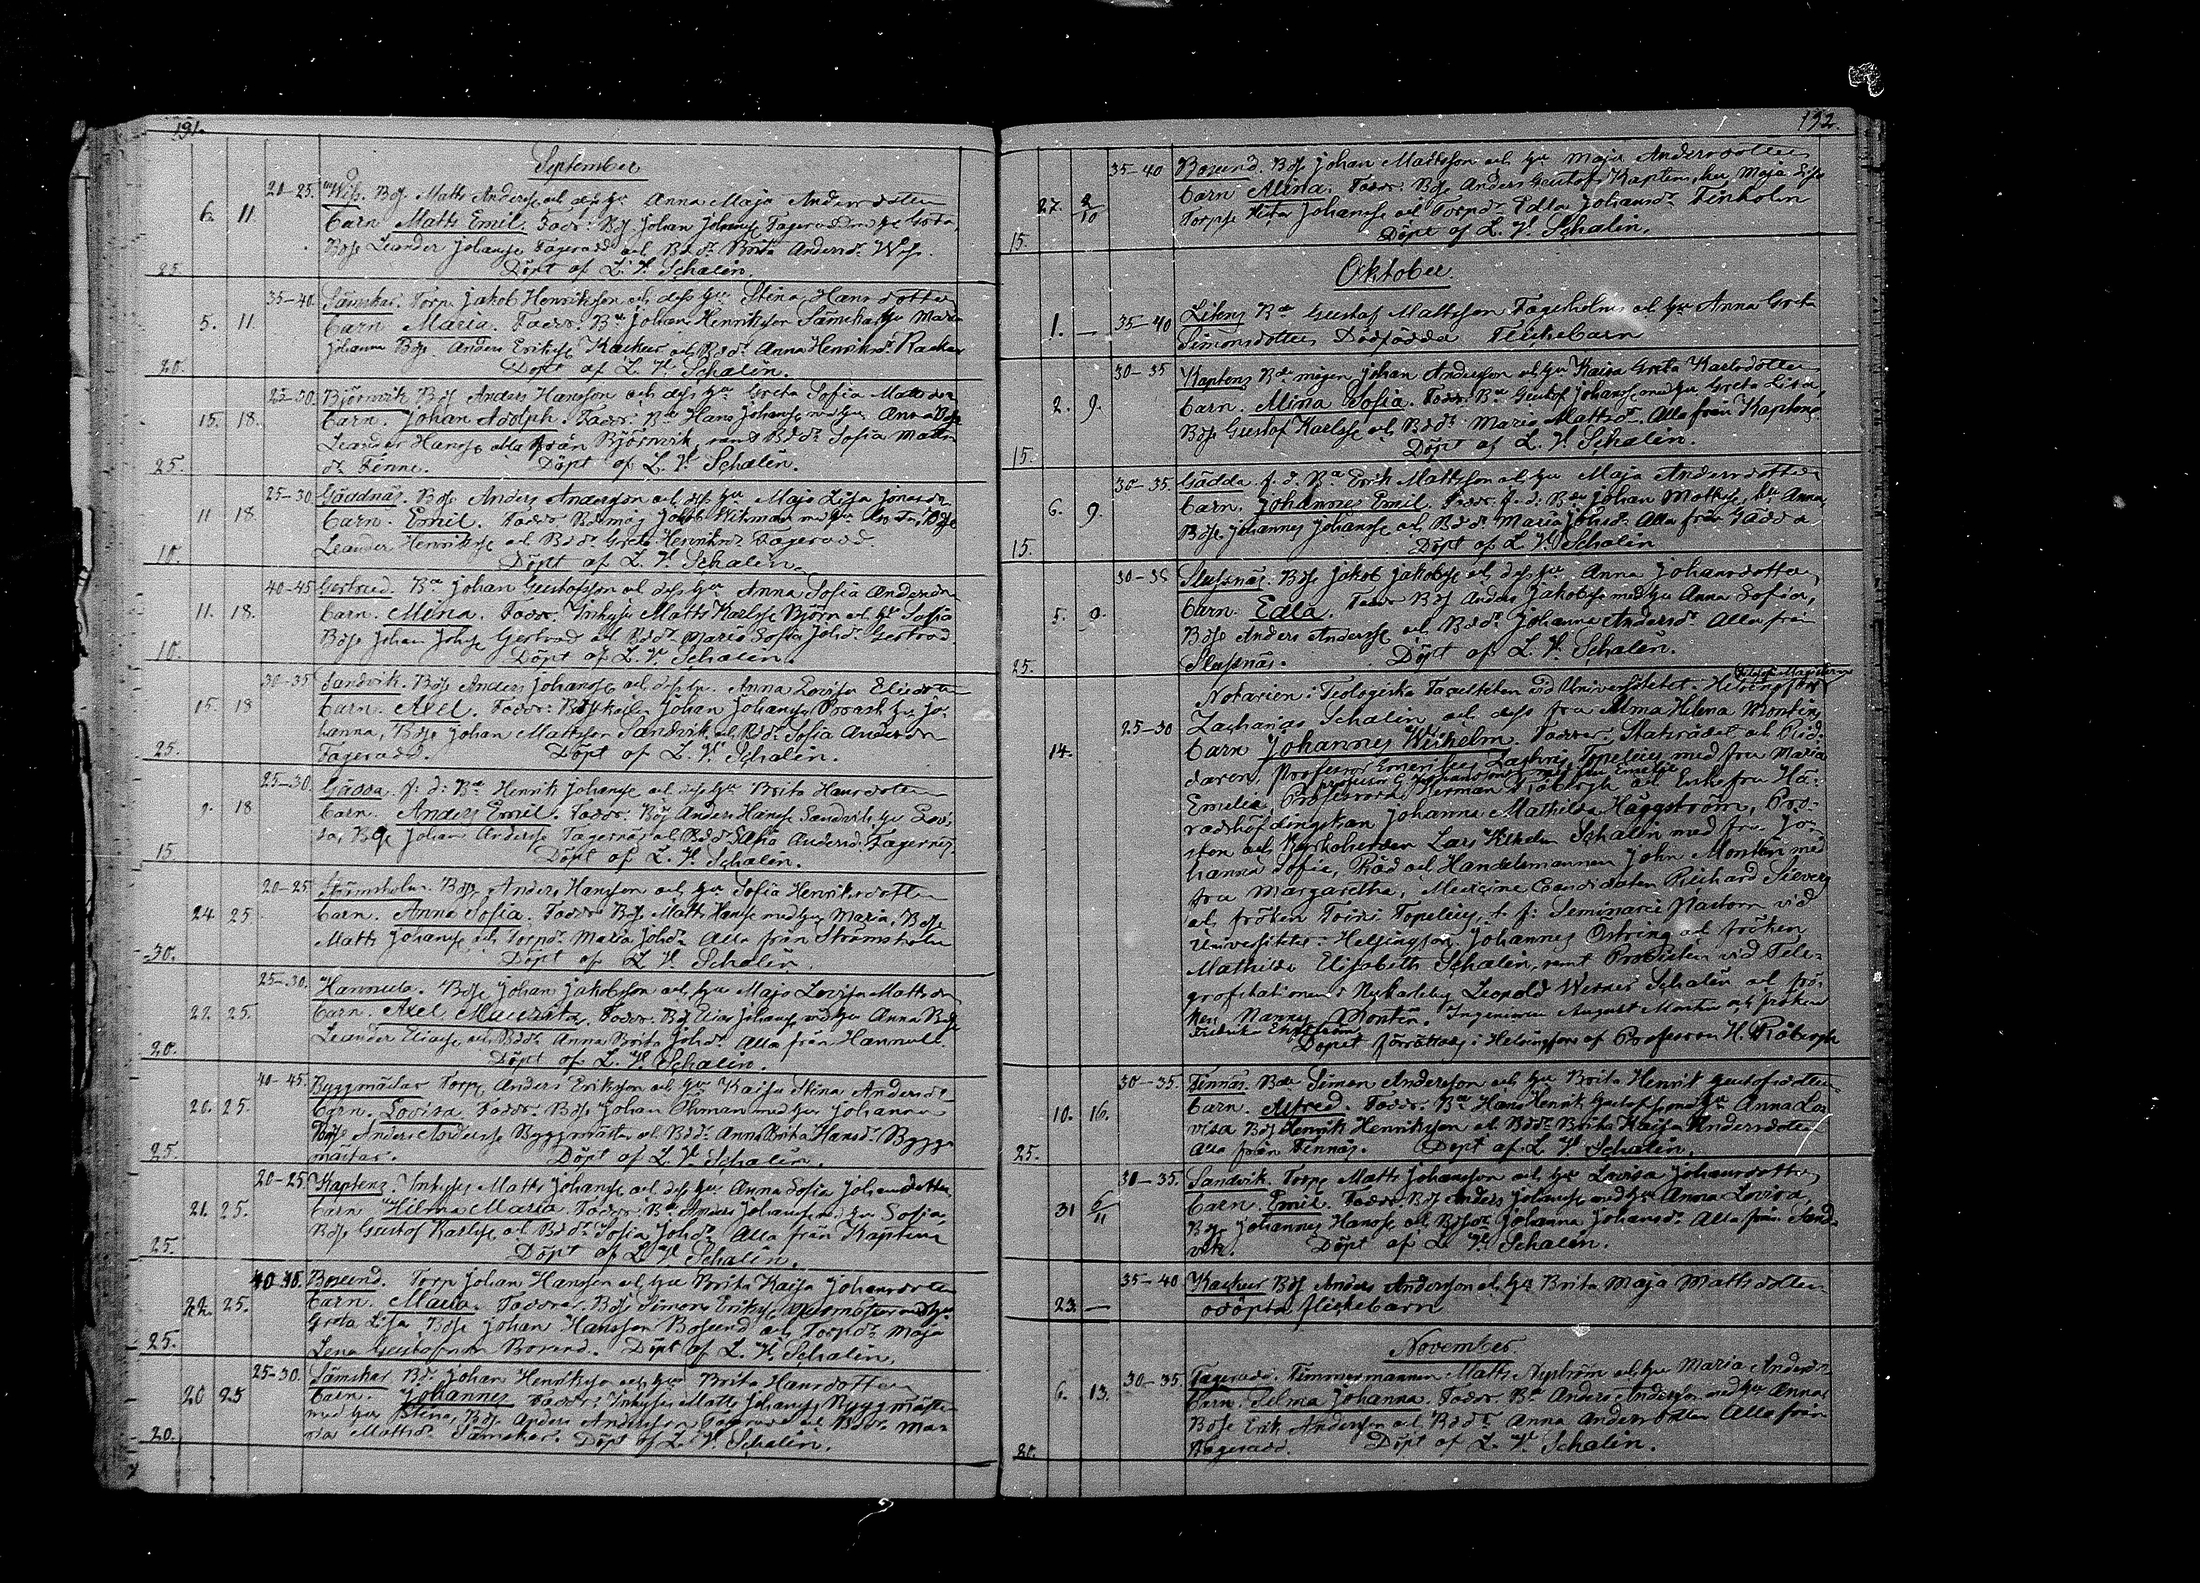 191.
September
6. 11. 20-25. Wiss. Bds. Matts Anderss. och dess hu Anna Maja Andersdotter
Barn Matts Emil. Faddr: Bds Johan Johanss Fageradd
Bds Leander Johanss Fageradd och Bdd. Brita Andersdr Wiss.
25. Döpt af L. W. Schalin.
5. 11. 35-40. Sämskar. Torp. Jakob Henriksson och dess hu Stina Hansdotter
Barn Maria. Faddr: Bn Johan Henriksson Sämskar hu Maria
Johanna Bds. Anders Erikss Kackur och Bdd. Anna Henriksdr Kackur
20. Döpt af L. W. Schalin.
15. 18. 25-30. Björnvik Bds Anders Hansson och dess hu Greta Sofia Mattsdr
Barn. Johan Adolph. Faddr: Bn Hans Johanss med hu Anna Bds
Leander Hanss alla från Björnvik samt Bdd. Sofia Matts
25. dr Finne. Döpt af L. W. Schalin.
11 18. 25-30. Gäddnäs. Bds Anders Andersson och dess hu Maja Lisa Jonasdr
Barn. Emil. Faddr Bdsmåg Jakob Wikman med hu
Leander Henrikss och Bdd. Greta Henriksdr Fageradd.
10. Döpt af L. W. Schalin.
11. 18. 40-45 Gertrud. Bn Johan Gustafsson och dess hu Anna Sofia Andersdr
Barn. Miina. Faddr. Inhyss Matts Karlss Björn och hu Sofia
Bds Johan Johss Gertrud och Bdd. Maria Sofia Johdr Gertrud
10. Döpt af L. W. Schalin.
15. 18 30-35 Sandvik. Bds Anders Johanss och dess hu. Anna Lovisa Eliedotter
Barn. Axel. Faddr: Johan Johanss Proast hu Jo-
hanna, Bds Johan Mattsson Sandvik och Bdd. Sofia Andersdr
25. Fageradd. Döpt af L. W. Schalin.
9. 18 25-30. Gädda f. d. Bn Henrik Johanss och dess hu Brita Hansdotter
Barn. Anders Emil. Faddr. Bds Anders Hanss Sandvik hu Lovi-
sa, Bds Johan Anderss Fagernäs och Bdd Sofia Andersd. Fagernäs.
15 Döpt af L. W. Schalin.
24. 25. 20-25 Strömsholm. Bds. Anders Hansson och hu Sofia Henriksdotter
Barn. Anna Sofia. Faddr Bds Matts Hanss med hu Maria, Bds
Matts Johanss och Torpdr. Maria Johdr Alla från Strömsholm
30. Döpt af L. W. Schalin.
22. 25. 25-30. Hannula. Bds Johan Jakobsson och hu Maja Lovisa Mattsdr
Barn. Axel Mauritz. Faddr. Bds Elias Johanss med hu Anna Bds
Leander Elianss och Bdd. Anna Brita Johdr. Alla från Hannula.
20. Döpt af L. W. Schalin.
20. 25. 40-45. Byggmästar Torp. Anders Eriksson och hu Kaisa Stina Andersdr
Barn. Lovisa. Faddr. Bds Johan Öhman med hu Johanna
Bds Anders Anderss Byggmästar och Bdd. Anna Brita Hansdr Bygg-
25. mästar. Döpt af L. W. Schalin.
21. 25. 20-25 Kaptens. Inhyss Matts Johanss och dess hu Anna Sofia Johansdotter
Barn Hilma Maria Faddr. Bn Anders Johanss och hu Sofia,
Bds Gustaf Karlss och Bdd. Sofia Johdr Alla från Kaptens
25. Döpt af L. W. Schalin.
22. 25. 40-45. Bosund. Torp Johan Hansson och hu Brita Kaisa Johansdotter
Barn. Maria. Faddrar. Bds Simon Erikss
Greta Lisa, Bds Johan Hansson Bosund och Torpdr. Maja
25. Lena Gustafsdr Bosund. Döpt af L. W. Schalin.
20 25 25-30. Sämskar Bd. Johan Henriksson och hu Brita Hansdotter
Barn. Johannes Faddr. Inhyss Matts Johanss Byggmästar
med hu Stina, Bds Anders Andersson Fageradd och Bdd. Ma-
20. ria Mattsdr Sämskar. Döpt af L. W. Schalin.
192.
35-40 Bosund. Bds Johan Mattsson och hu Maja Andersdotter
27. 2/10 Barn Alina. Faddr. Bds Anders Gustafs. Kaptens, hu Maja Lisa
Torps Johanss och Torpdr. Edla Johansdr Finholm
15. Döpt af L. W. Schalin.
Oktober.
1. — 35-40 Libeng Bn Gustaf Mattsson Fagerholm och hu Anna Greta
Simonsdotters Dödfödda Flickebarn
30-35 Kaptens Bdsmågen Johan Andersson och hu Kaisa Greta Karlsdotter
2. 9. Barn. Miina Sofia. Faddr. Bn Gustaf Johanss med hu Greta Lisa,
Bds Gustaf Karlss och Bdd. Maria Mattsdr. Alla från Kaptens
15. Döpt af L. W. Schalin.
30-35. Gädda. f. d. Bn Erik Mattsson och hu Maja Andersdotter
6. 9. Barn. Johannes Emil. Faddr. f. d. Bn Johan Mattss, hu Anna,
Bds Johannes Johanss och Bdd. Maria Johsdr. Alla från Gädda
15. Döpt af L. W. Schalin
30-35 Slussnäs. Bds Jakob Jakobss och dess hu Anna Johansdotter
5. 9. Barn. Edla. Faddr Bds Anders Jakobss med hu Anna Sofia,
Bds Anders Anderss och Bdd. Johanna Andersdr Alla från
25. Slussnäs. Döpt af L. W. Schalin.
Notarien i Teologiska Faculteten vid Universitetet i Helsingfors Filosofie Magistern
25-30 Zacharias Schalin och dess fru Alma Helena Montin
14. Barn Johannes Wilhelm. Faddrar. Statsrådet och Rid-
daren, Professor Emeritus Zachris Topelius med fru Maria
Emelia, Professorn Herman Råbergh och Enkefru Hä-
radshöfdingskan Johanna Mathilda Häggström, Pro-
sten och Kyrkoherden Lars Wilhelm Schalin med fru Jo-
hanna Sofia, Råd och Handelsmannen John Montin med
fru Margaretha, Medicine Candidaten Richard Sievers
och fröken Toini Topelius, t. f. Seminarii Pastorn vid
Universitetet i Helsingfors Johannes Östring och fröken
Mathilda Elisabeth Schalin, samt Prokuristen vid Tele-
grafstationen i Nykarleby Leopold Werner Schalin och frö-
ken Nanny Montin. Ingeniören August Montin och fröken
Fredrika Ehrström
Dopet förrättadt i Helsingfors af Professorn H. Råbergh
30-35. Finnäs. Bdn Simon Andersson och hu Brita Henrik Gustafsdotter
10. 16. Barn. Alfred. Faddr. Bn Hans Henrik Gustafsson med hu Anna Lo-
visa Bds Henrik Henriksson och Bdd. Brita Kaisa Andersdotter
25. Alla från Finnäs. Döpt af L. W. Schalin.
30-35. Sandvik. Torp. Matts Johansson och hu Lovisa Johansdotter
31 6/11 Barn. Emil. Faddr. Bds Anders Johanss med hu Anna Lovisa,
Bds Johannes Hanss och Bdd. Johanna Johansdr. Alla från Sand-
vik. Döpt af L. W. Schalin.
35-40 Kackur Bds Anders Andersson och hu Brita Maja Mattsdotter
23. — odöpta flickebarn
November
30-35. Fageradd. Timmermannen Matts Nyström och hu Maria Andersdr
6. 13. Barn. Selma Johanna. Faddr. Bn Anders Andersson med hu Anna,
Bds Erik Andersson och Bdd. Anna Andersdotter Alla från
20. Fageradd. Döpt af L. W. Schalin.